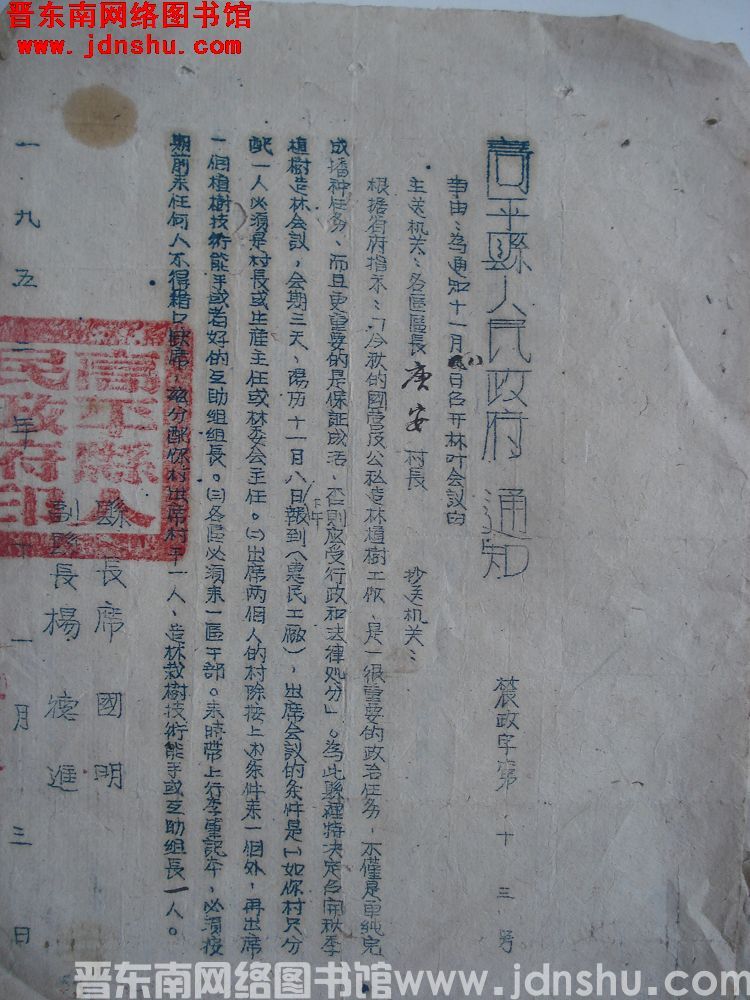 晋东南网络图书馆
www.jdnshu.com
高平縣人民政府通知
農政字第十三号
事由：為通知十一月八日召开林叶会議的
主送机关：各區區長 唐安 村長 抄送机关：
根据省府指示：「今秋的國营及公私造林植樹工作、是一很重要的政治任务，不僅是單純完
成播种任务、而且更重要的是保証成活、否則应受行政和法律処分」。為此縣裡特决定召開秋季
植樹造林会議，会期三天，陽历十一月八日下午報到（惠民工廠），出席会議的条件是(一)如你村只分
配一人必須是村長或生産主任或林委会主任。(二)出席两個人的村除按上述条件来一個外，再出席
一個植樹技術能手或者好的互助組組長。(三)各區必須来一區干部。来時帶上行李筆記本，必須按
期前来任何人不得藉口缺席，兹分配你村出席村干一人、造林栽樹技術能手或互助組長一人。
縣長席國明
副縣長楊德進
一九五二年十一月三日
高平縣人民政府印
晋东南网络图书馆www.jdnshu.com